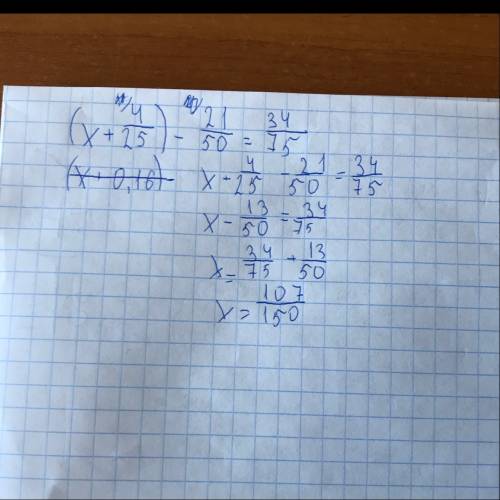 (x + 4/25) - 21/50 = 34/75
(x + 0,16) - x + 4/25 - 21/50 = 34/75
x - 13/50 = 34/75
x = 34/75 + 13/50
x = 107/150